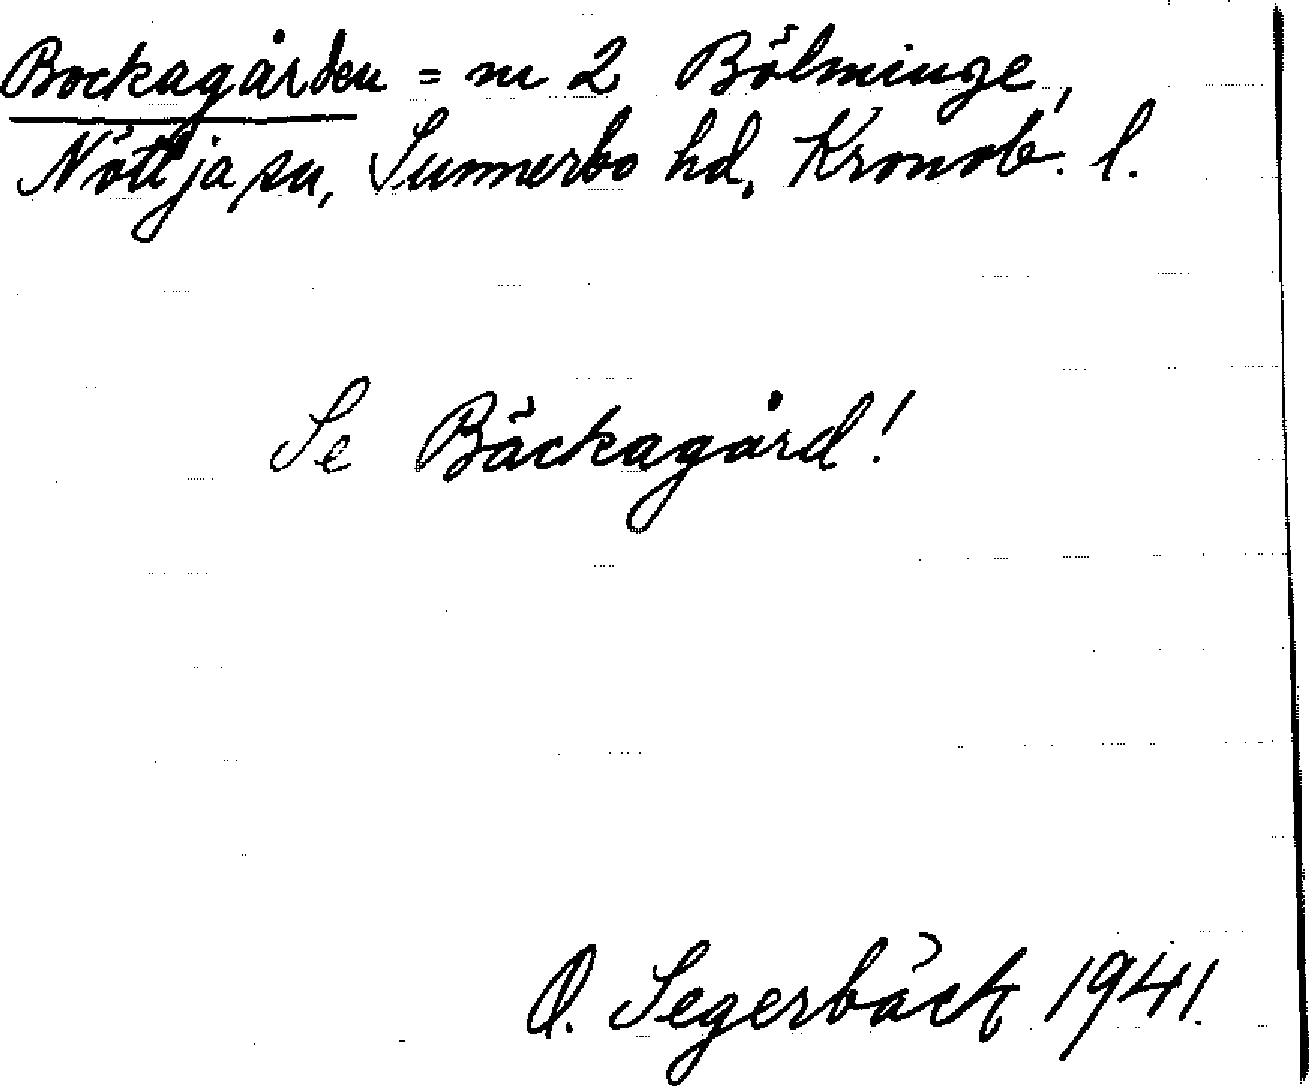 Bockagården = nr 2 Bölminge,
Nöttja sn, Sunnerbo hd, Kronob. l.
Se Bäckagård!
O. Segerbäck 1941.